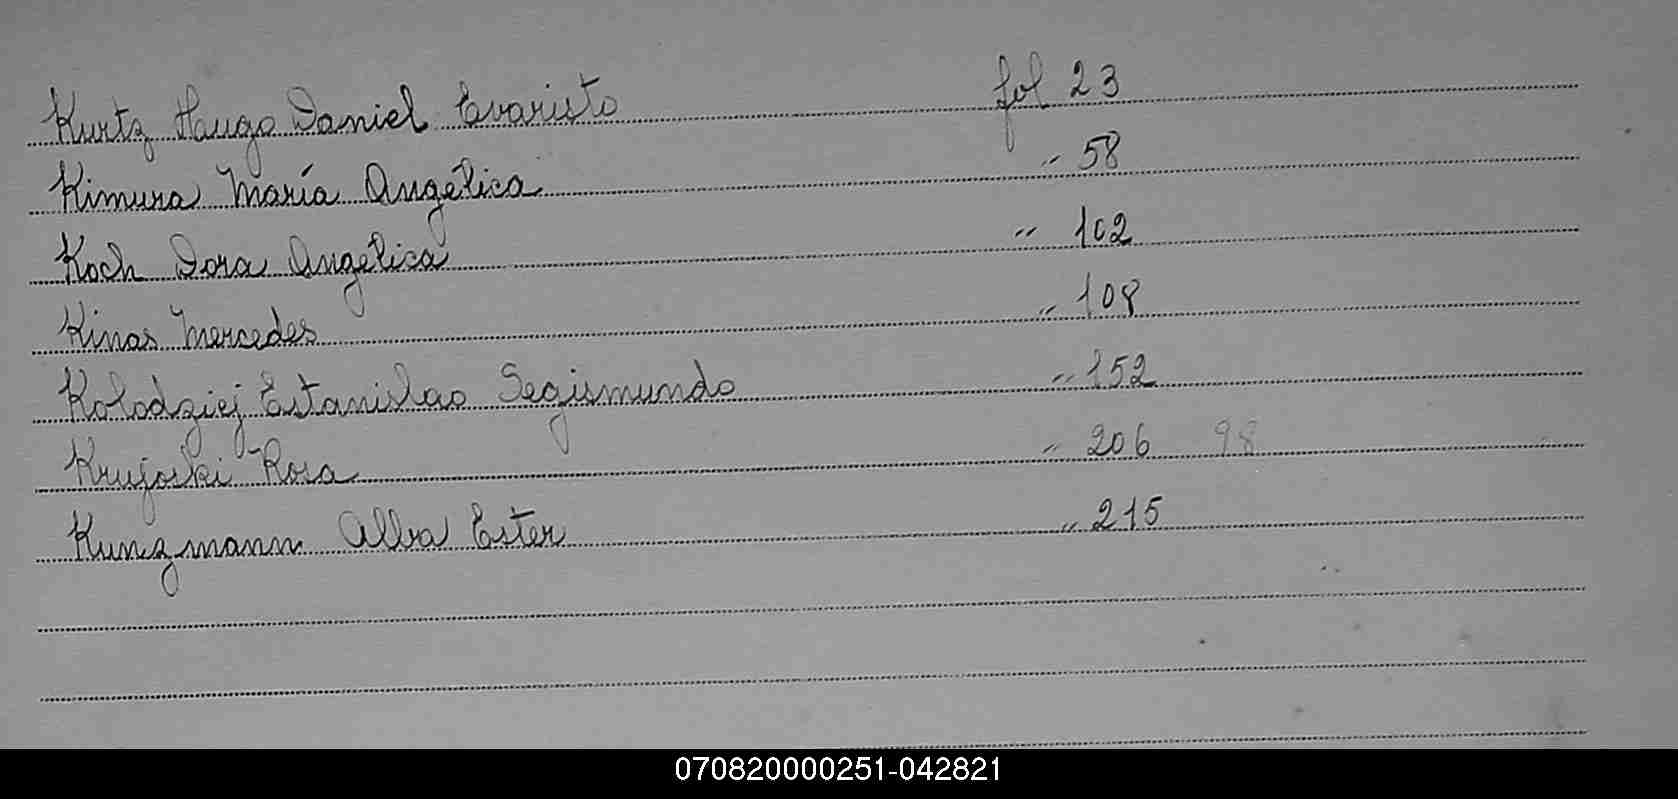 Kurtz Haugo Daniel Evaristo fol 23
Kimura María Angélica " 58
Koch Dora Angélica " 102
Kinas Mercedes " 108
Kolodziej Estanislao Segismundo " 152
Krujoski Rosa " 206 98
Kunzmann Alba Ester " 215
070820000251-042821